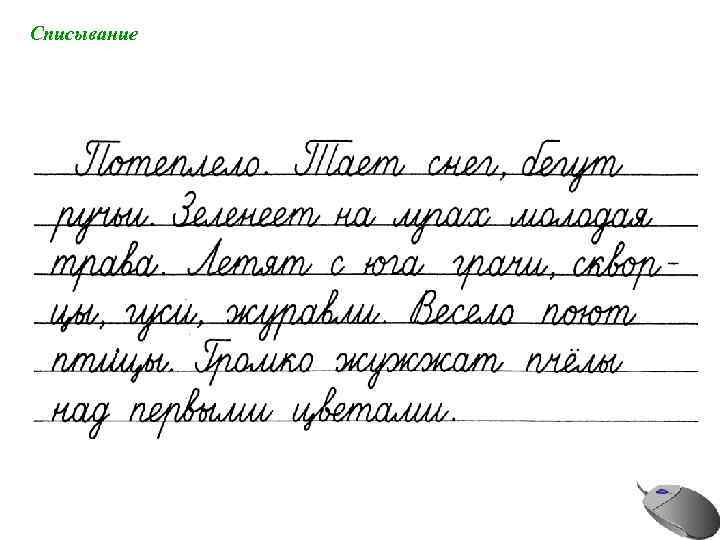 Списывание
Потеплело. Тает снег, бегут
ручьи. Зеленеет на лугах молодая
трава. Летят с юга грачи, сквор-
цы, гуси, журавли. Весело поют
птицы. Громко жужжат пчёлы
над первыми цветами.